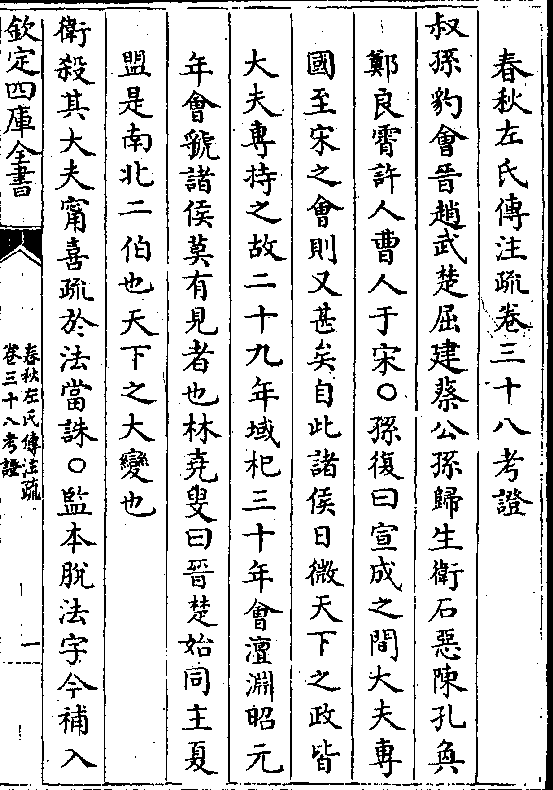 春秋左氏傳注疏卷三十八考證
叔孫豹會晉趙武楚屈建蔡公孫歸生衛石惡陳孔奐
鄭良霄許人曹人于宋○孫復曰宣成之間大夫專
國至宋之會則又甚矣自此諸侯日微天下之政皆
大夫專持之故二十九年城杞三十年會澶淵昭元
年會虢諸侯莫有見者也林堯叟曰晉楚始同主夏
盟是南北二伯也天下之大變也
衛殺其大夫甯喜疏於法當誅○監本脫法字今補入
欽定四庫全書
春秋左氏傳注疏
卷三十八考證
一